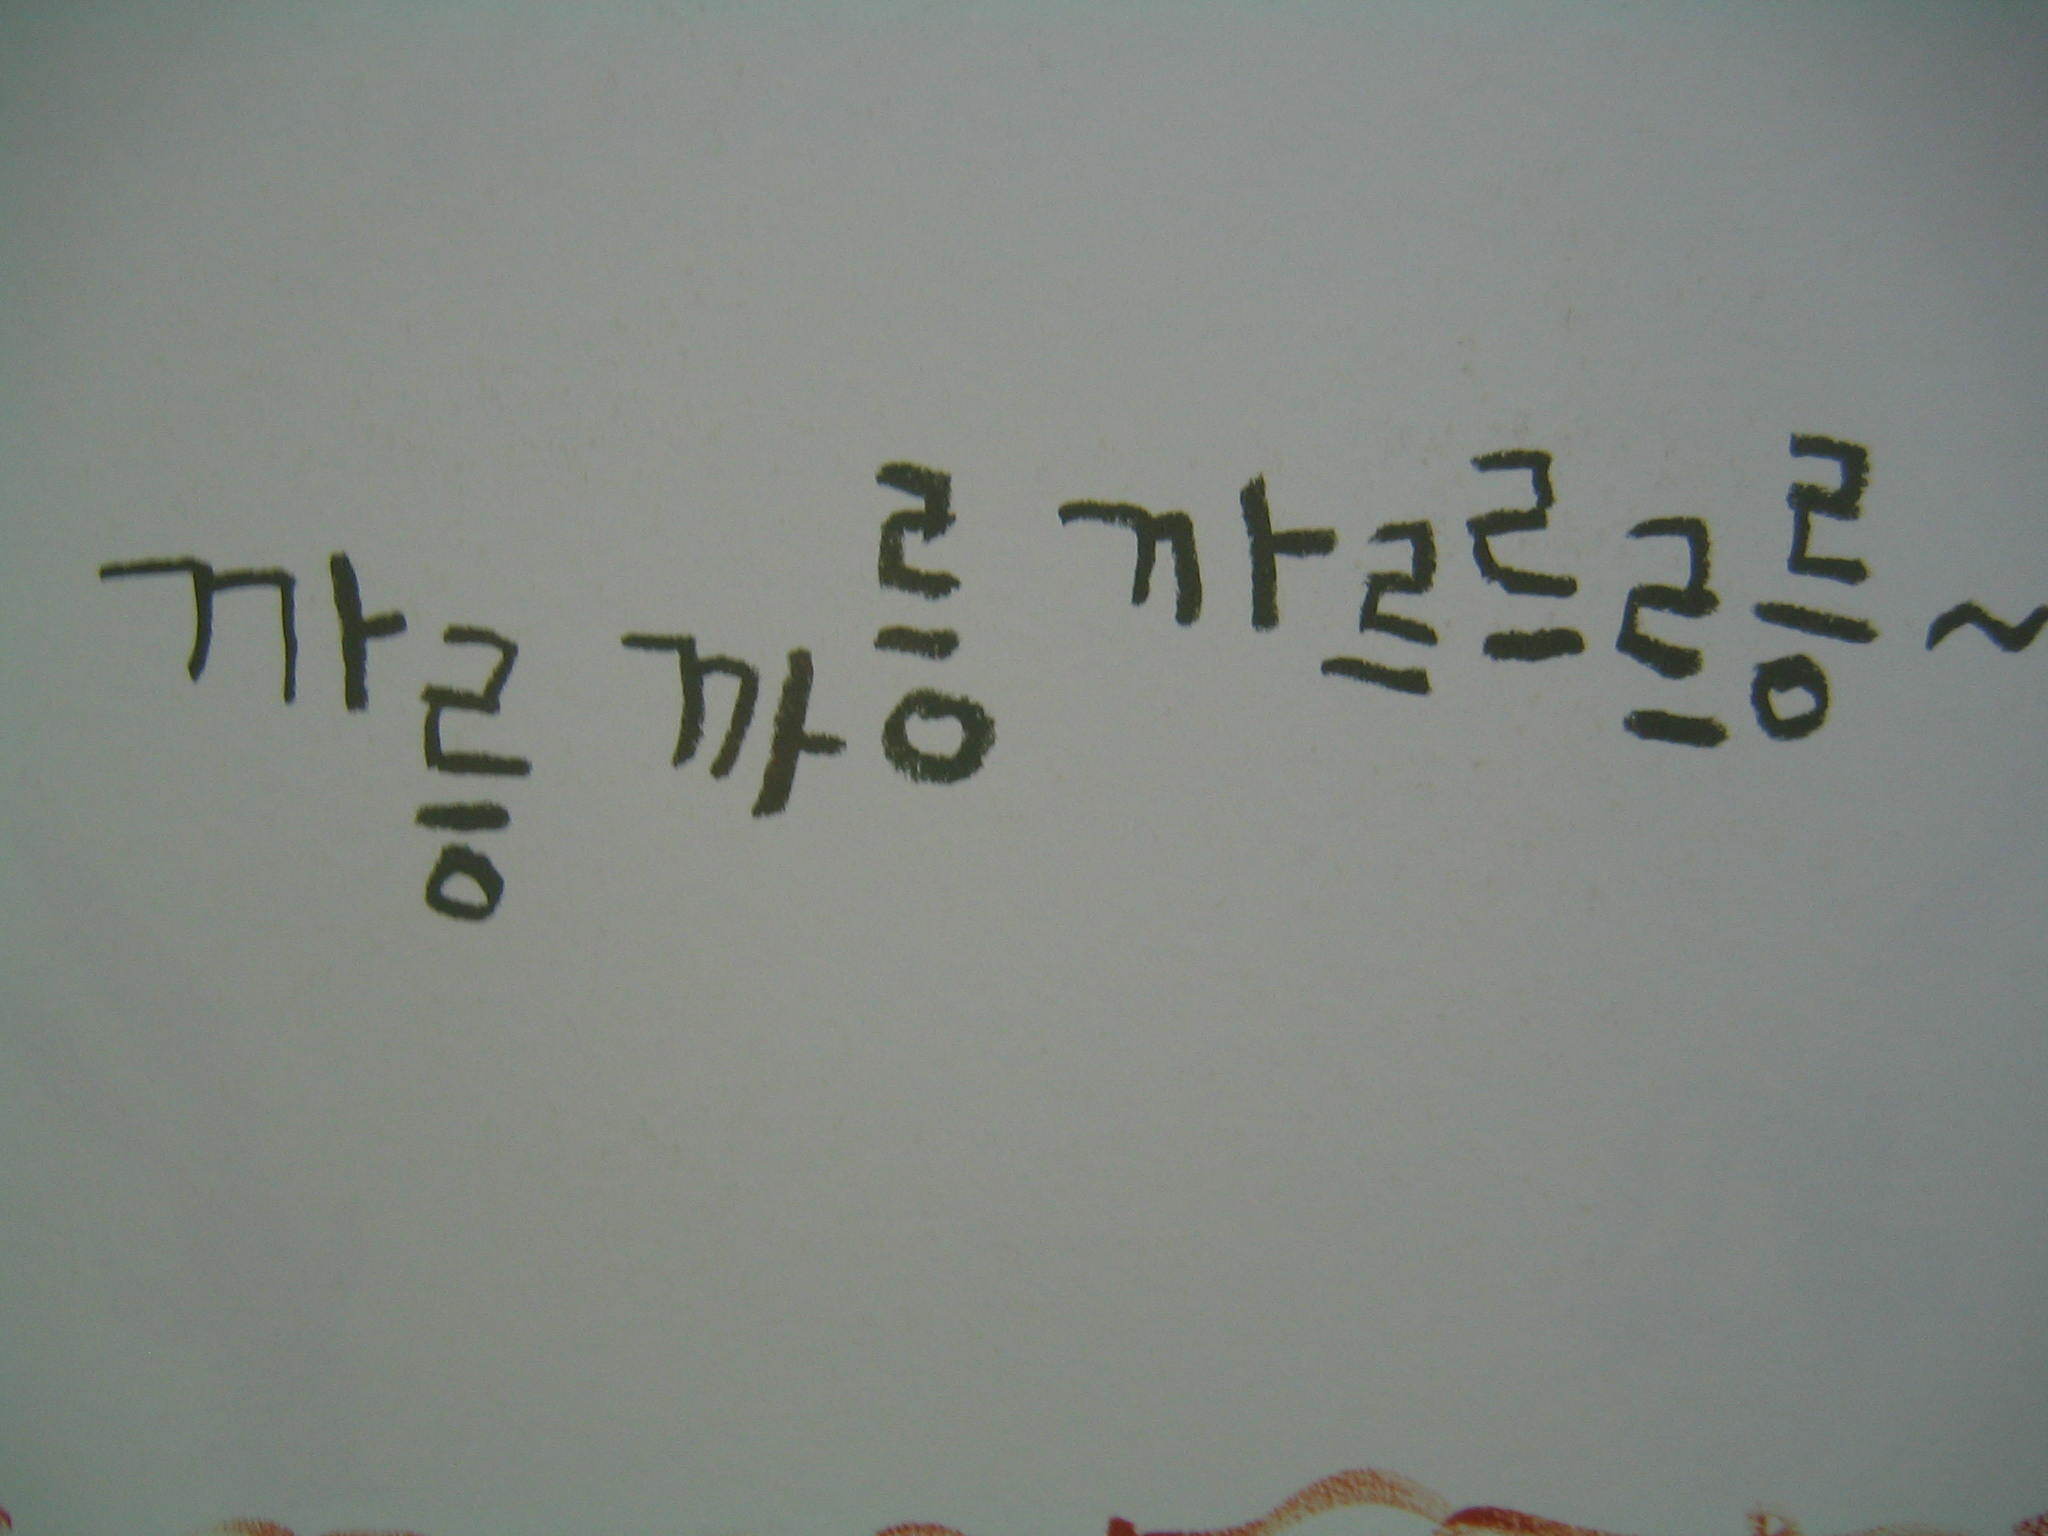 까릉 까릉 까르르르릉~